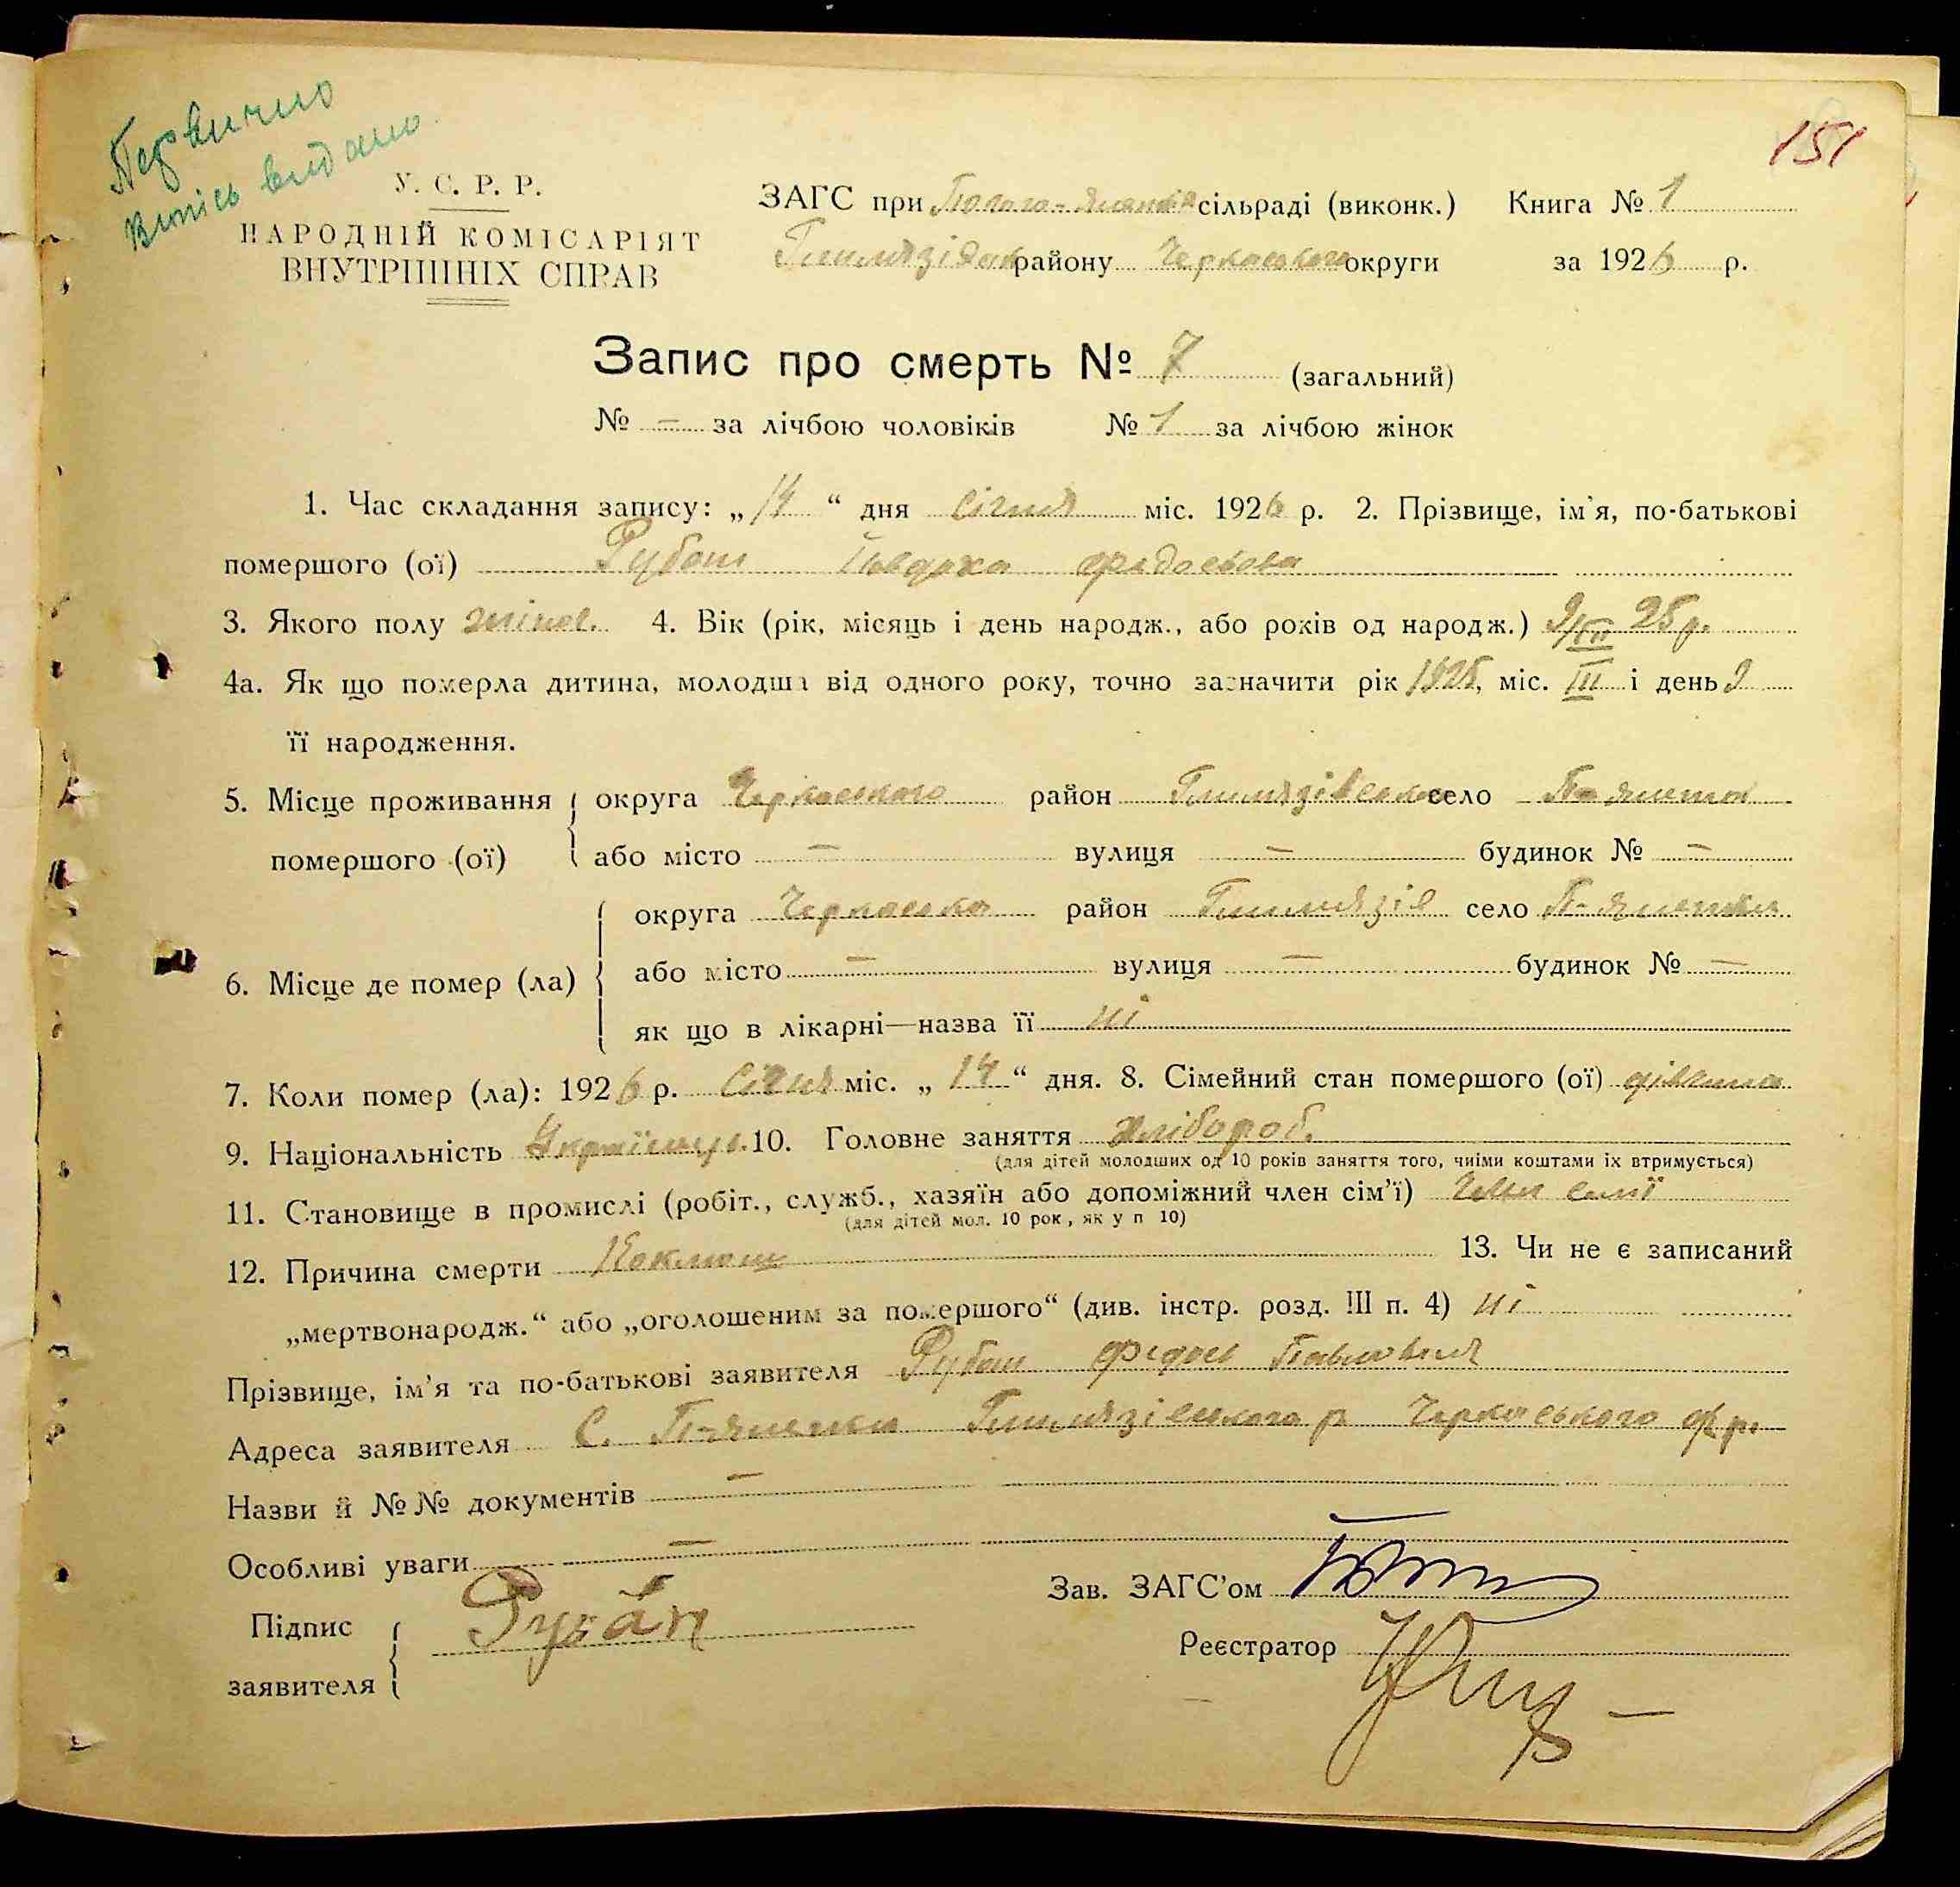 Первично
Випісь видано
151
У. С. Р. Р.
НАРОДНІЙ КОМІСАРІЯТ
ВНУТРІШНІХ СПРАВ
ЗАГС при сільраді (виконк.) Книга № 1
району Черкаського округи за 1926 р.
Запис про смерть № 7 (загальний)
№ — за лічбою чоловіків № 1 за лічбою жінок
1. Час складання запису: „ 14 “ дня Січня міс. 1926 р. 2. Прізвище, ім'я, по-батькові
помершого (ої) Рубан Федосьова
3. Якого полу жіноч. 4. Вік (рік, місяць і день народж., або років од народж.) 9/III 25 р.
4а. Як що померла дитина, молодша від одного року, точно зазначити рік 1925, міс. III і день 9
її народження.
5. Місце проживання округа Черкаського район Гельмязівського село
помершого (ої) або місто — вулиця — будинок № —
округа Черкаська район Гельмязів село
6. Місце де помер (ла) або місто — вулиця — будинок № —
як що в лікарні—назва її ні
7. Коли помер (ла): 1926 р. Січня міс. „ 14 “ дня. 8. Сімейний стан помершого (ої)
9. Національність 10. Головне заняття Хлібороб.
(для дітей молодших од 10 років заняття того, чиїми коштами їх втримується)
11. Становище в промислі (робіт., служб., хазяїн або допоміжний член сім'ї) Член семї
(для дітей мол. 10 рок, як у п 10)
12. Причина смерти Коклюш 13. Чи не є записаний
„мертвонародж.“ або „оголошеним за помершого“ (див. інстр. розд. III п. 4) ні
Прізвище, ім'я та по-батькові заявителя Рубан Федось Павлович
Адреса заявителя С. р Черкаського
Назви й №№ документів —
Особливі уваги —
Зав. ЗАГС'ом
Підпис Рубан
Реєстратор
заявителя